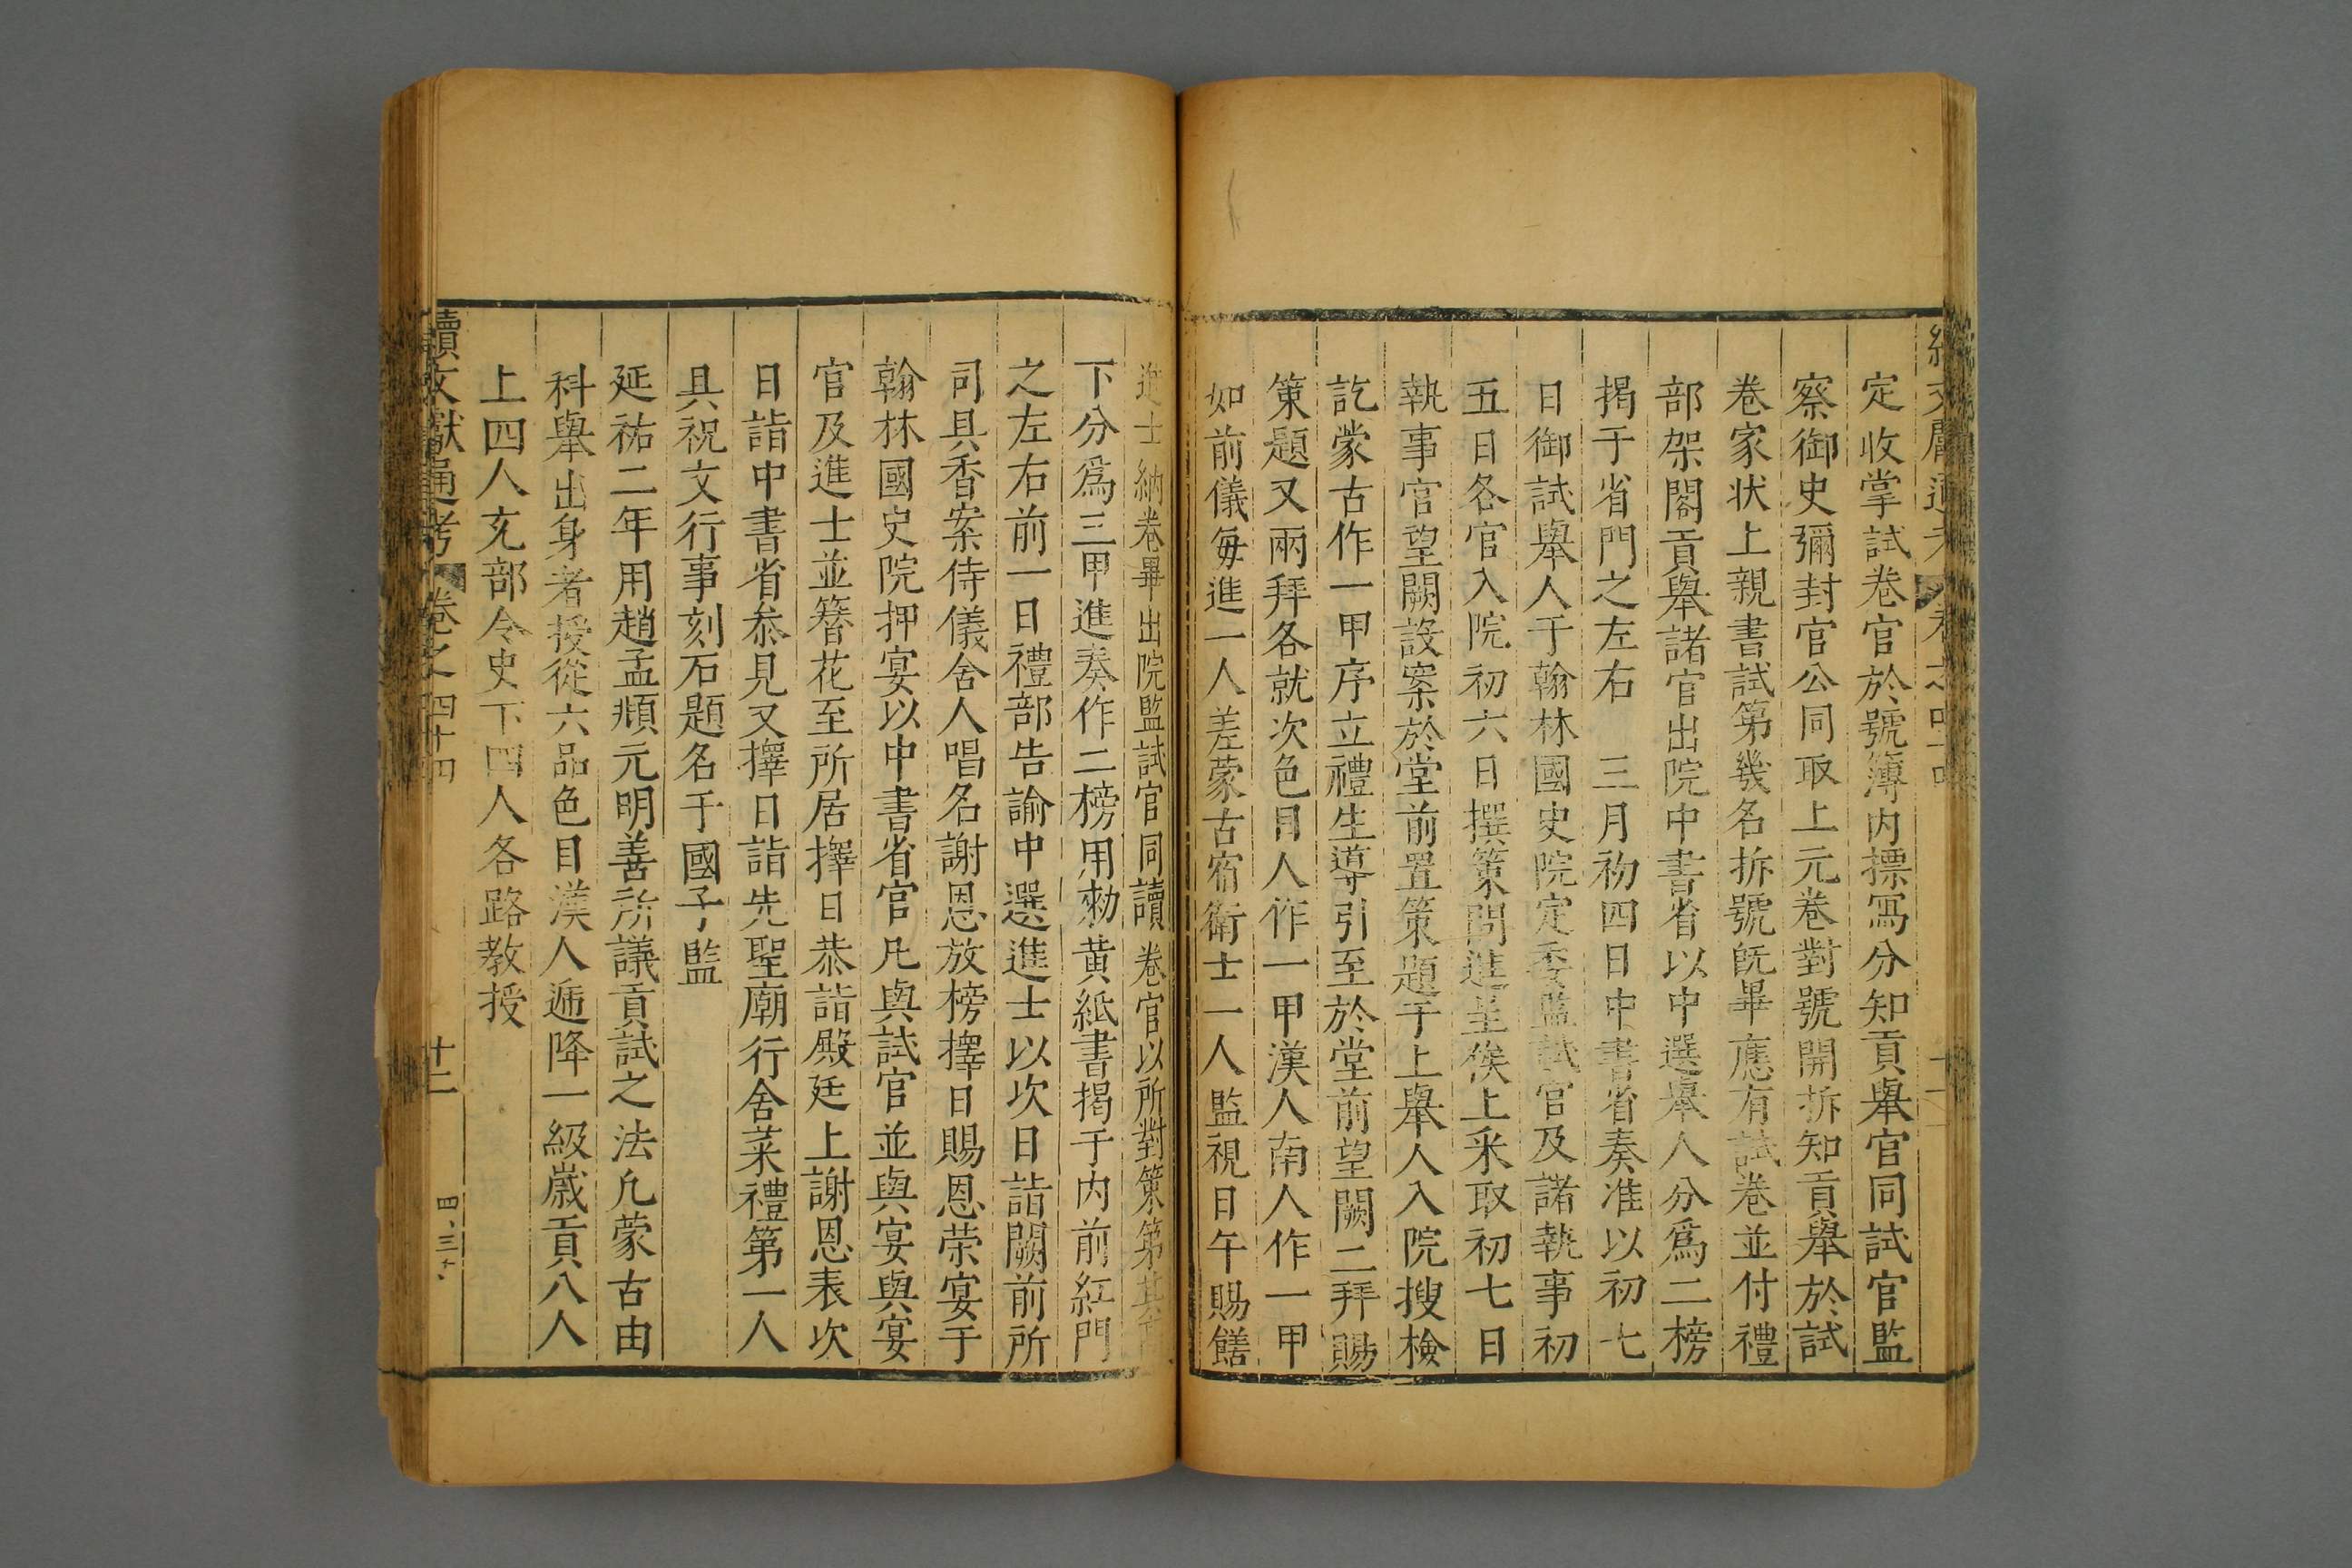 定收掌試卷官於號簿内摽寫分知貢舉官同試官監
察御史彌封官公同取上元卷對號開拆知貢舉於試
卷家状上親書試第幾名拆號旣畢應有試卷並付禮
部架閣貢舉諸官出院中書省以中選舉人分爲二榜
揭于省門之左右　三月初四日中書省奏准以初七
日御試舉人于翰林國史院定委監試官及諸執事初
五日各官入院初六日撰策問進呈俟上采取初七日
執事官望闕設案於堂前置策題于上舉人入院搜檢
訖蒙古作一甲序立禮生導引至於堂前望闕二拜賜
策題又兩拜各就次色目人作一甲漢人南人作一甲
如前儀每進一人差蒙古宿衛士一人監視日午賜饍
進士納卷畢出院監試官同讀卷官以所對策第其高
下分爲三甲進奏作二榜用勑黄紙書揭于内前紅門
之左右前一日禮部告諭中選進士以次日詣闕前所
司具香案侍儀舍人唱名謝恩放榜擇日賜恩荣宴于
翰林國史院押宴以中書省官凡與試官並與宴與宴
官及進士並簪花至所居擇日恭詣殿廷上謝恩表次
日詣中書省叅見又擇日詣先聖廟行舍菜禮第一人
具祝文行事刻石題名于國子監
延祐二年用趙孟頫元明善所議貢試之法凡蒙古由
科舉出身者授從六品色目漢人遞降一級歲貢八人
上四人充部令史下四人各路教授
續文獻通考 卷之四十四 十二 四、三十